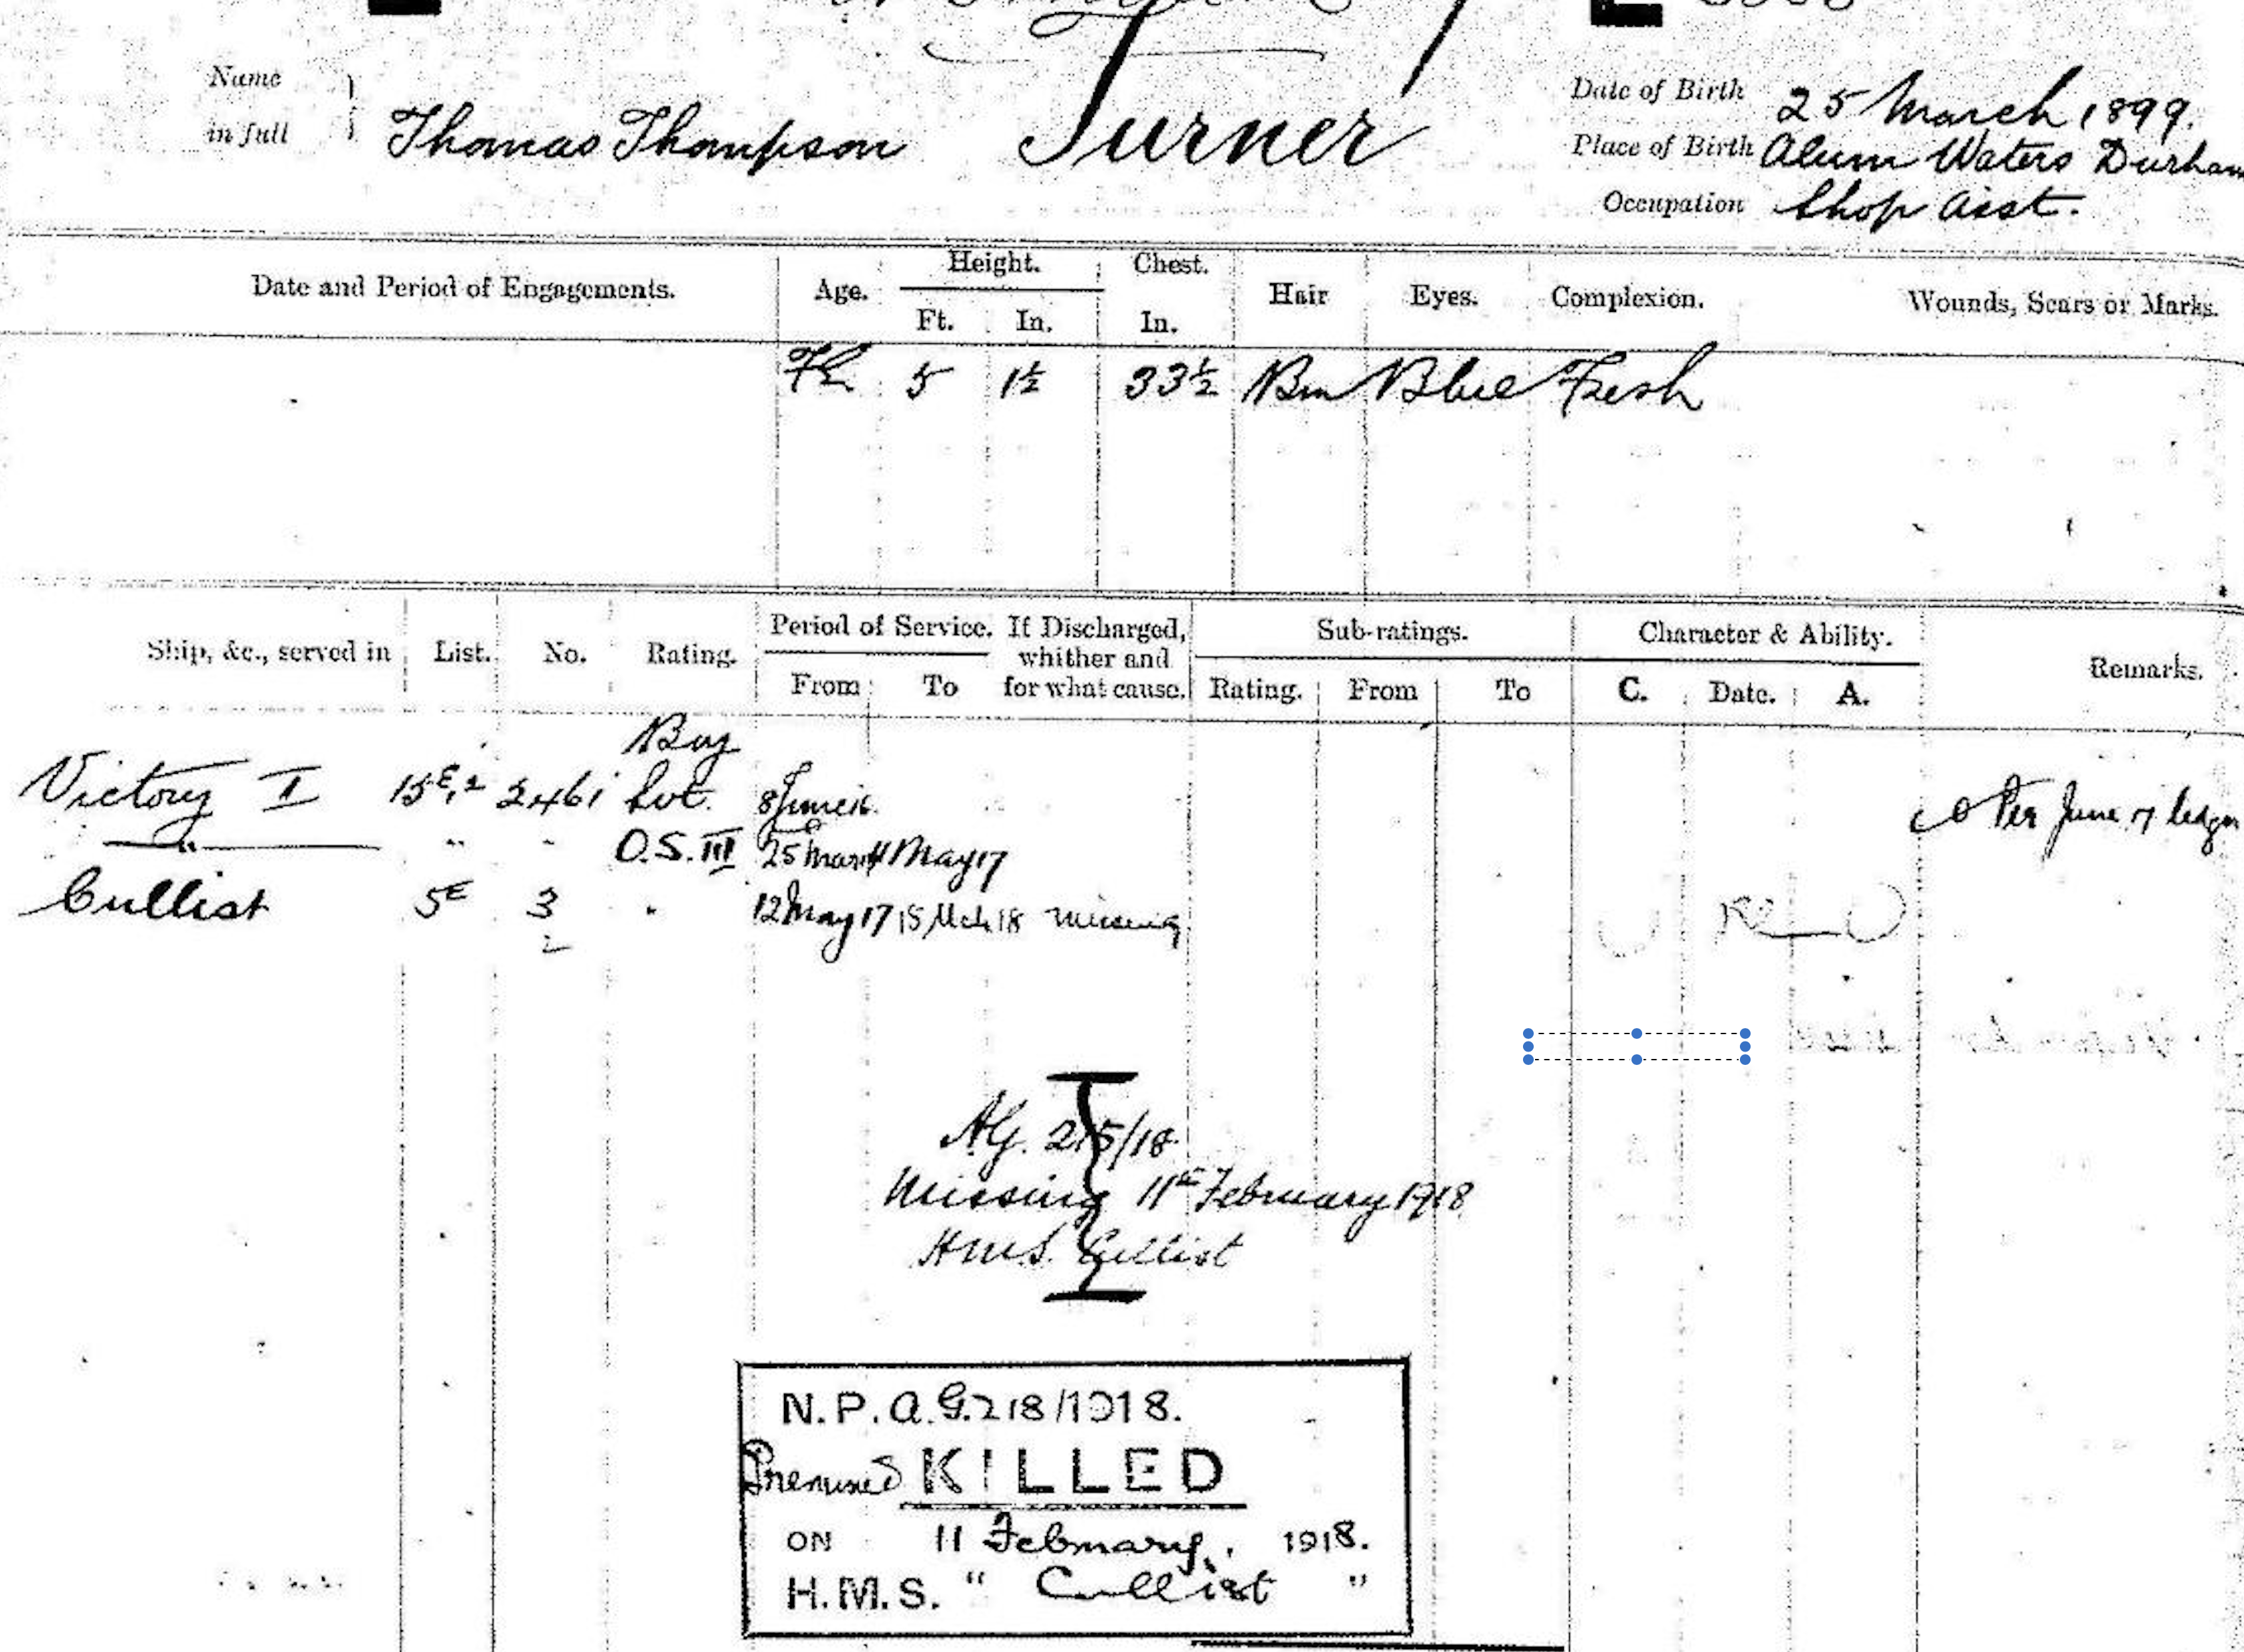 Name
in full
Thomas Thompson Turner
Date of Birth 25 March 1899.
Place of Birth Alum Waters Durham
Occupation Shop Asst.
Date and Period of Engagements. Age. Height. Chest. Hair Eyes. Complexion. Wounds, Scars or Marks.
Ft. In. In.
5 1½ 33½ Brn Blue Fresh
Ship, &c., served in List. No. Rating. Period of Service. If Discharged, whither and for what cause. Sub-ratings. Character & Ability. Remarks.
From To Rating. From To C. Date. A.
Boy
Victory I 15E,2 2461 Svt. 8 June 16
" " " O.S. III 25 Mar 11 May 17
Per June 17 ledger
Cullist 5E 3 " 12 May 17 15 Mch 18 missing
2
A.G. 215/18
Missing 11th February 1918
H.M.S. Cullist
N.P. A.G. 218/1918.
Presumed KILLED
ON 11 February, 1918.
H.M.S. " Cullist "